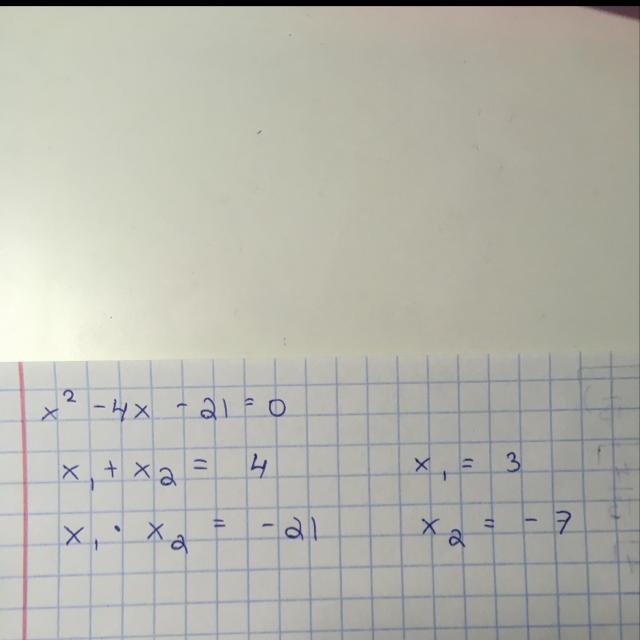 x² - 4x - 21 = 0
x₁ + x₂ = 4 x₁ = 3
x₁ · x₂ = -21 x₂ = -7